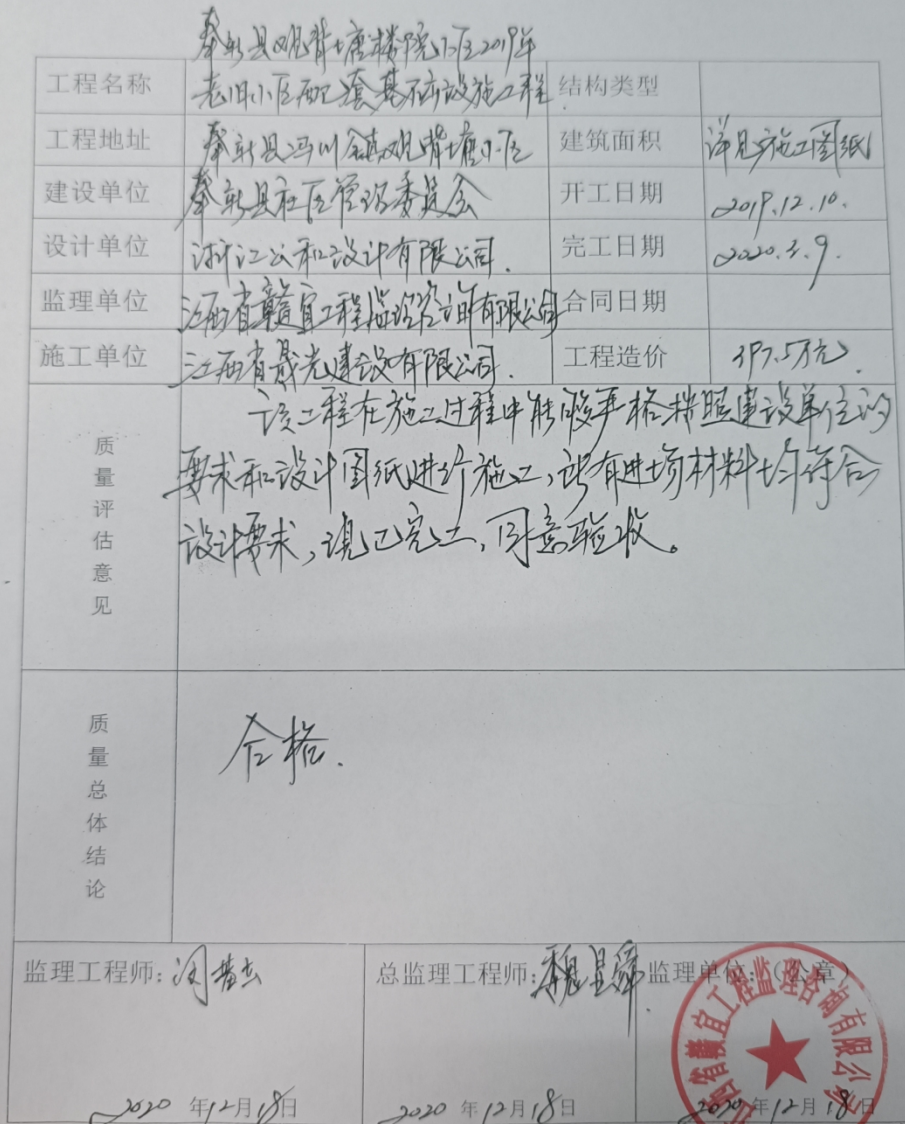 奉新县观背塘楼院小区2019年
工程名称 老旧小区配套基础设施工程 结构类型
工程地址 奉新县冯川镇观背塘小区 建筑面积 详见施工图纸
建设单位 奉新县社区管理委员会 开工日期 2019.12.10.
设计单位 浙江公和设计有限公司. 完工日期 2020.3.9.
监理单位 江西省赣宜工程监理咨询有限公司 合同日期
施工单位 江西省晟光建设有限公司. 工程造价 397.5万元
质量评估意见
该工程在施工过程中能够严格按照建设单位的
要求和设计图纸进行施工,所有进场材料均符合
设计要求,现已完工,同意验收。
质量总体结论
合格.
监理工程师: 总监理工程师: 监理单位:(公章)
江西省赣宜工程监理咨询有限公司
2020年12月18日 2020年12月18日 2020年12月18日